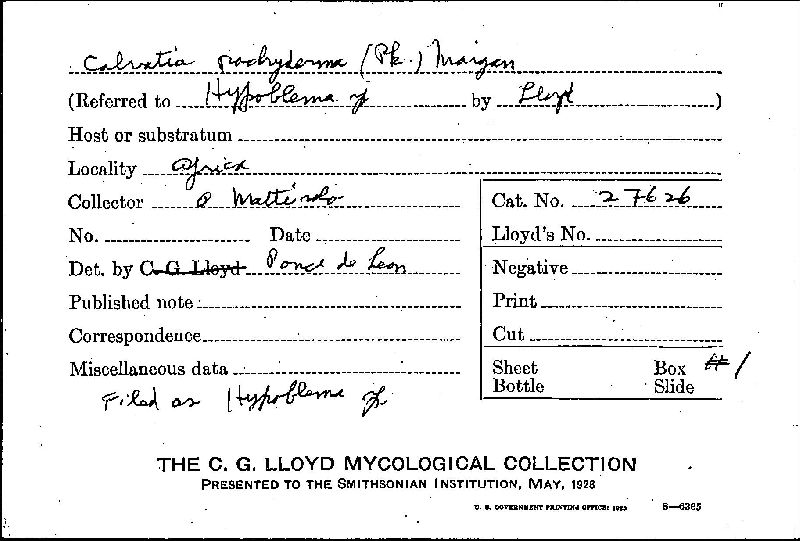 Calvatia pachyderma (Pk.) Morgan
(Referred to Hypoblema by Lloyd)
Host or substratum
Locality Africa
Collector O Mattirolo
Cat. No. 27626
No. Date
Lloyd's No.
Det. by C. G. Lloyd Ponce de Leon
Negative
Published note:
Print
Correspondence
Cut
Miscellaneous data
Sheet Box #1
Bottle Slide
Filed as Hypoblema
THE C. G. LLOYD MYCOLOGICAL COLLECTION
PRESENTED TO THE SMITHSONIAN INSTITUTION, MAY, 1928
U. S. GOVERNMENT PRINTING OFFICE:
8—6385